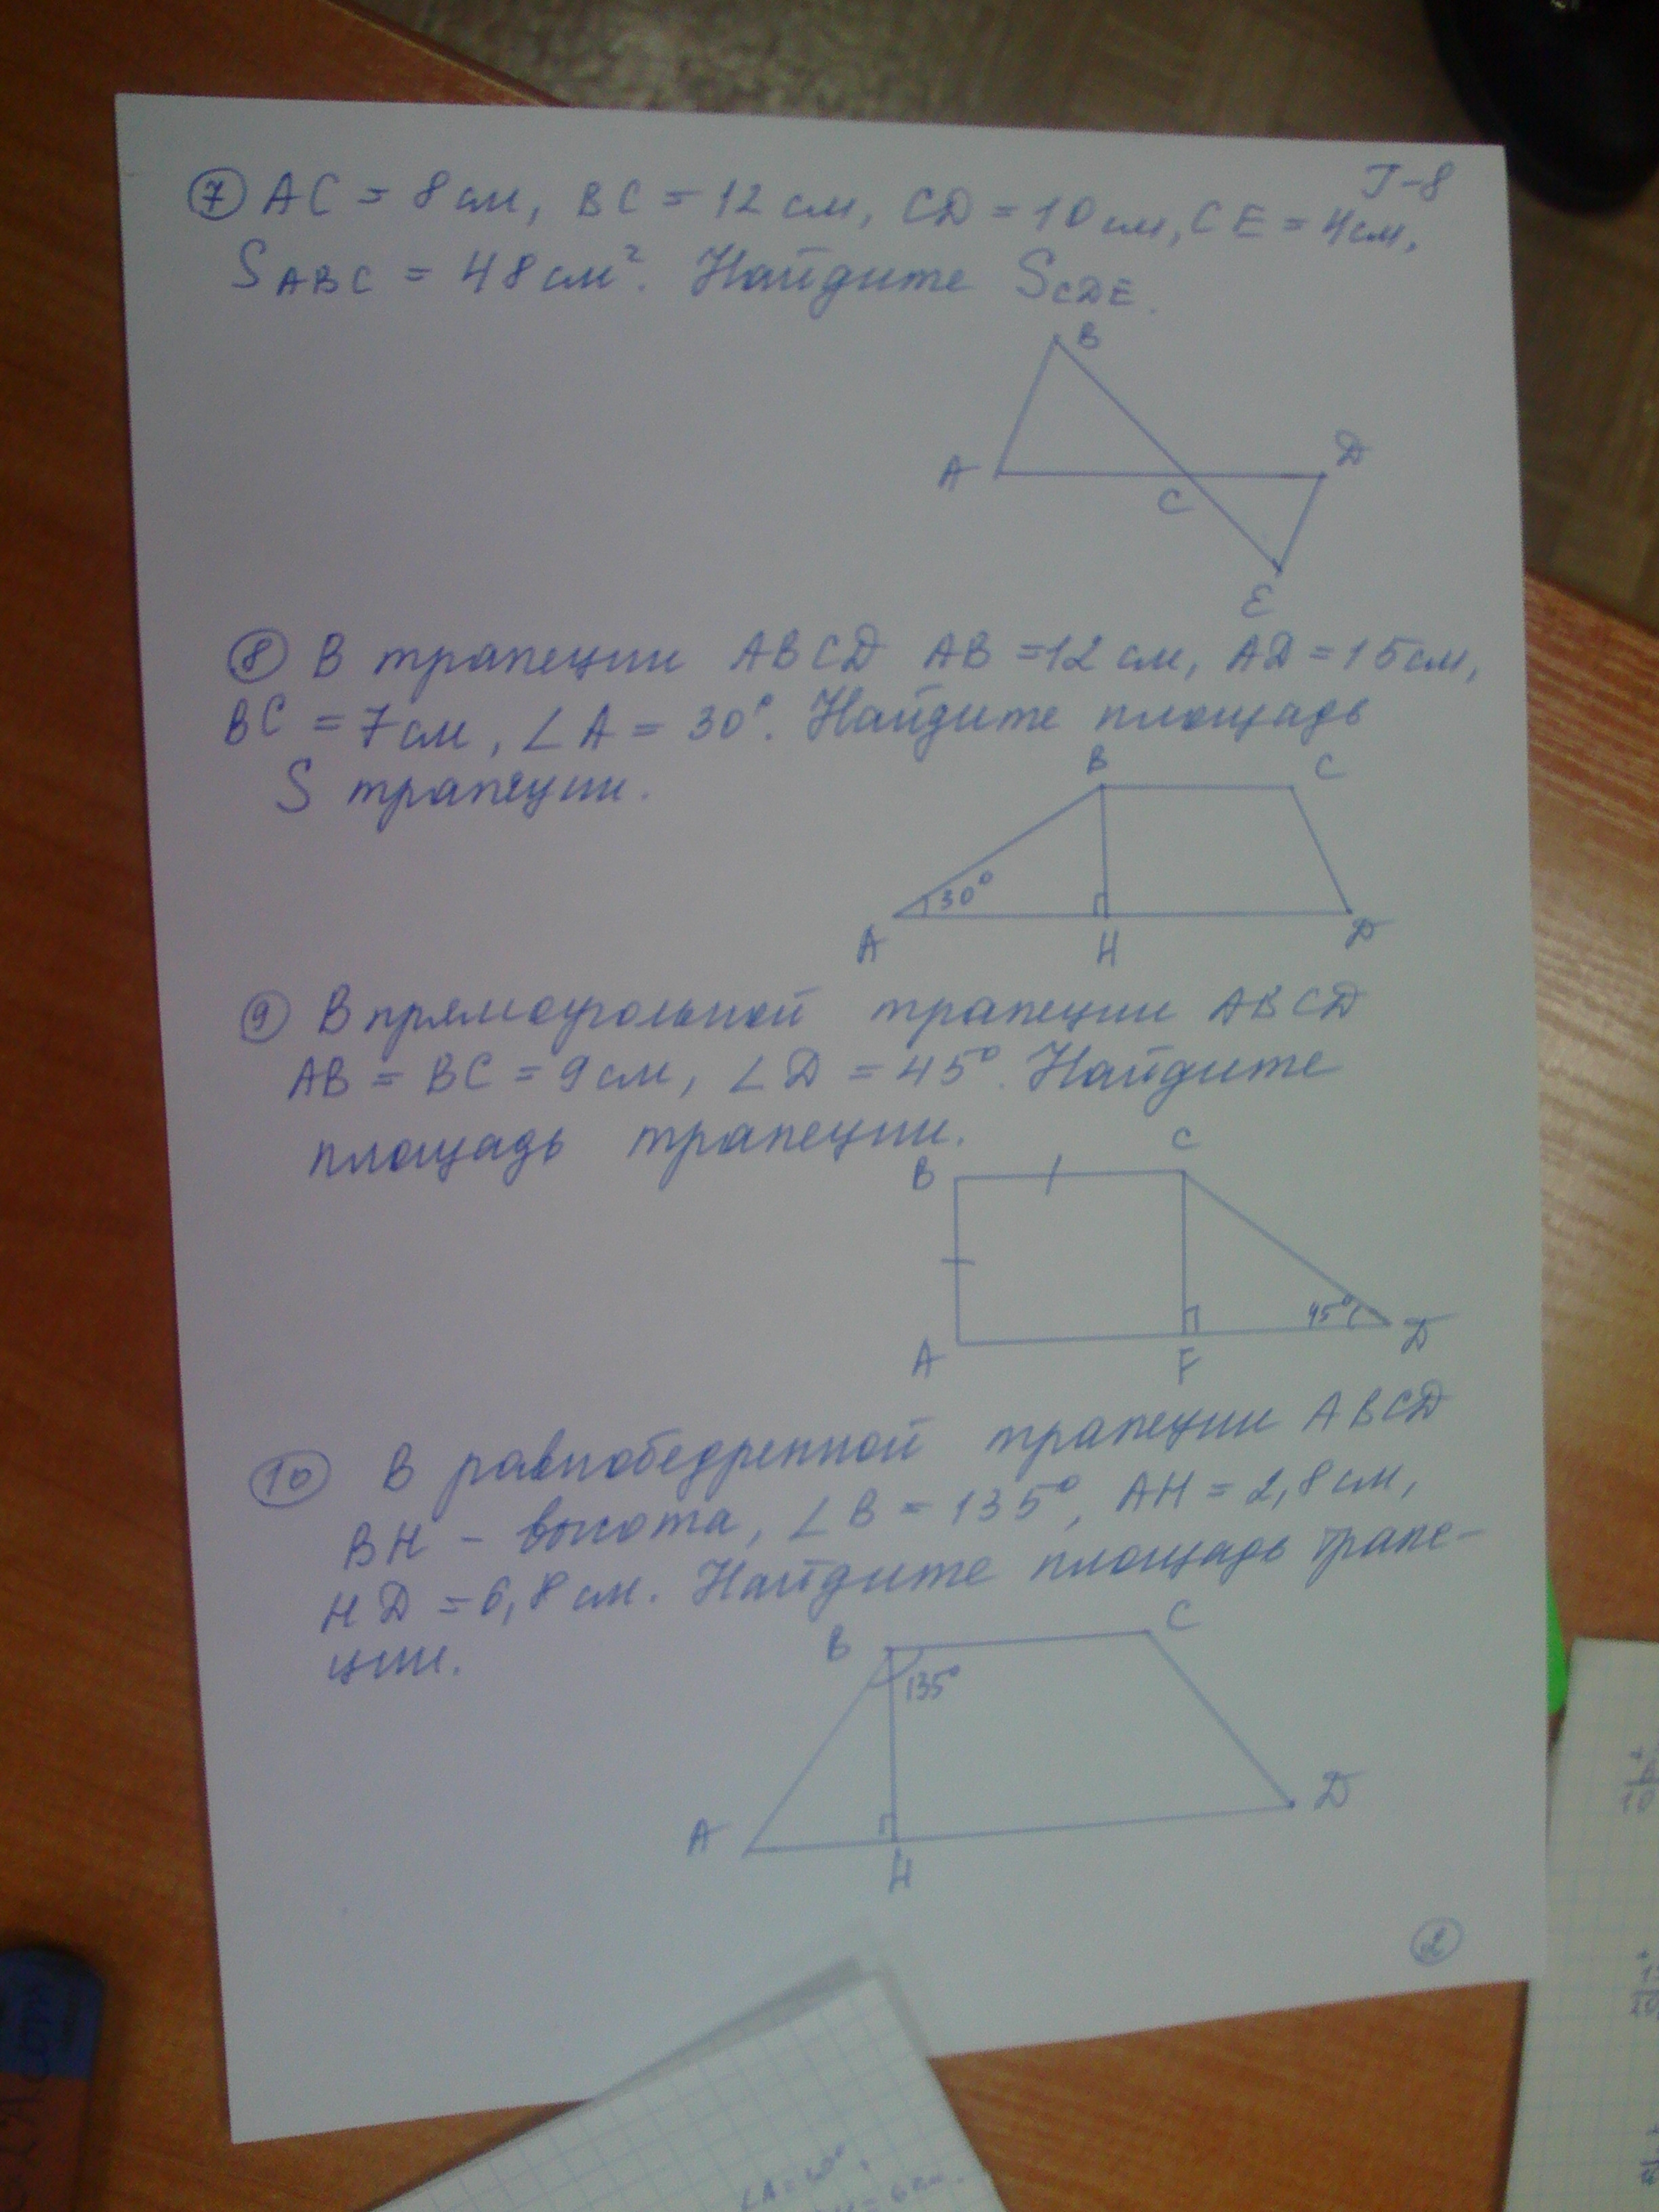 Г-8
⑦ AC = 8 см, BC = 12 см, CD = 10 см, CE = 4 см,
S ABC = 48 см². Найдите S CDE.
B
A
C
D
E
⑧ В трапеции ABCD AB = 12 см, AD = 15 см,
BC = 7 см, ∠A = 30°. Найдите площадь
S трапеции.
B C
30°
A H D
⑨ В прямоугольной трапеции ABCD
AB = BC = 9 см, ∠D = 45°. Найдите
площадь трапеции.
B C
45°
A F D
⑩ В равнобедренной трапеции ABCD
BH - высота, ∠B = 135°, AH = 2,8 см,
HD = 6,8 см. Найдите площадь трапе-
ции.
B C
135°
A H D
②
∠A =
= 6 см.